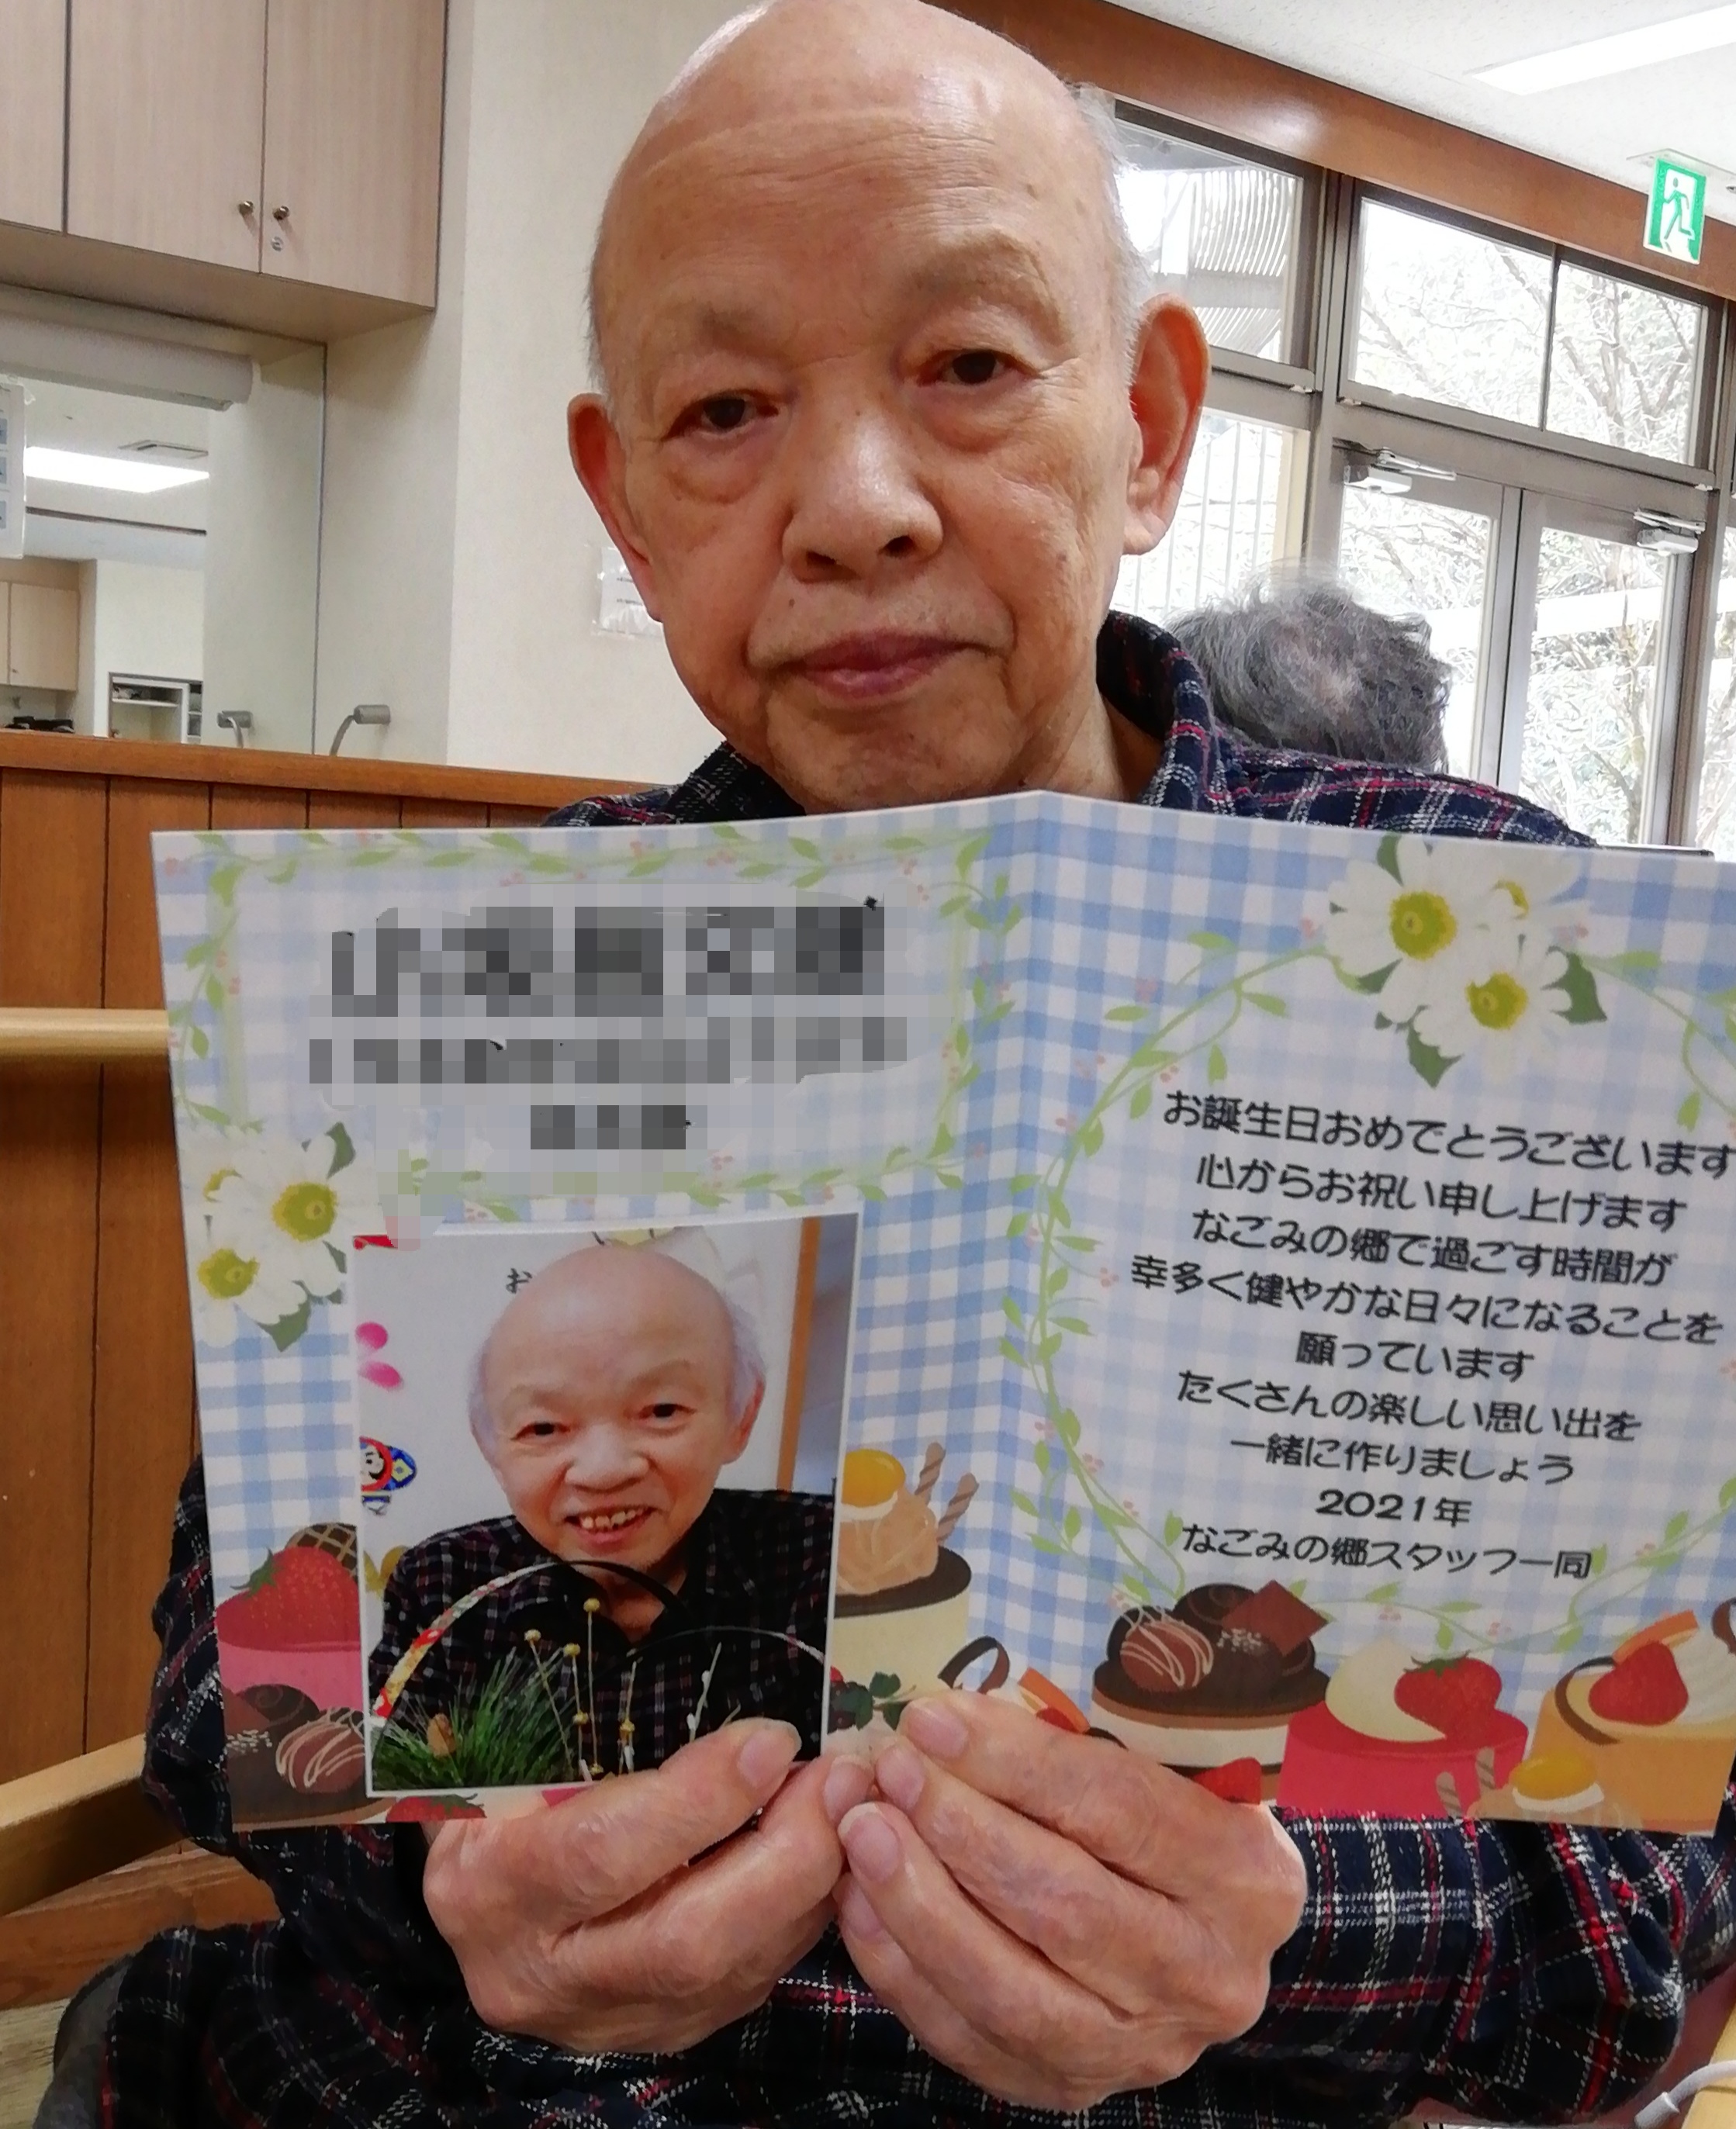 お
お誕生日おめでとうございます
心からお祝い申し上げます
なごみの郷で過ごす時間が
幸多く健やかな日々になることを
願っています
たくさんの楽しい思い出を
一緒に作りましょう
2021年
なごみの郷スタッフ一同